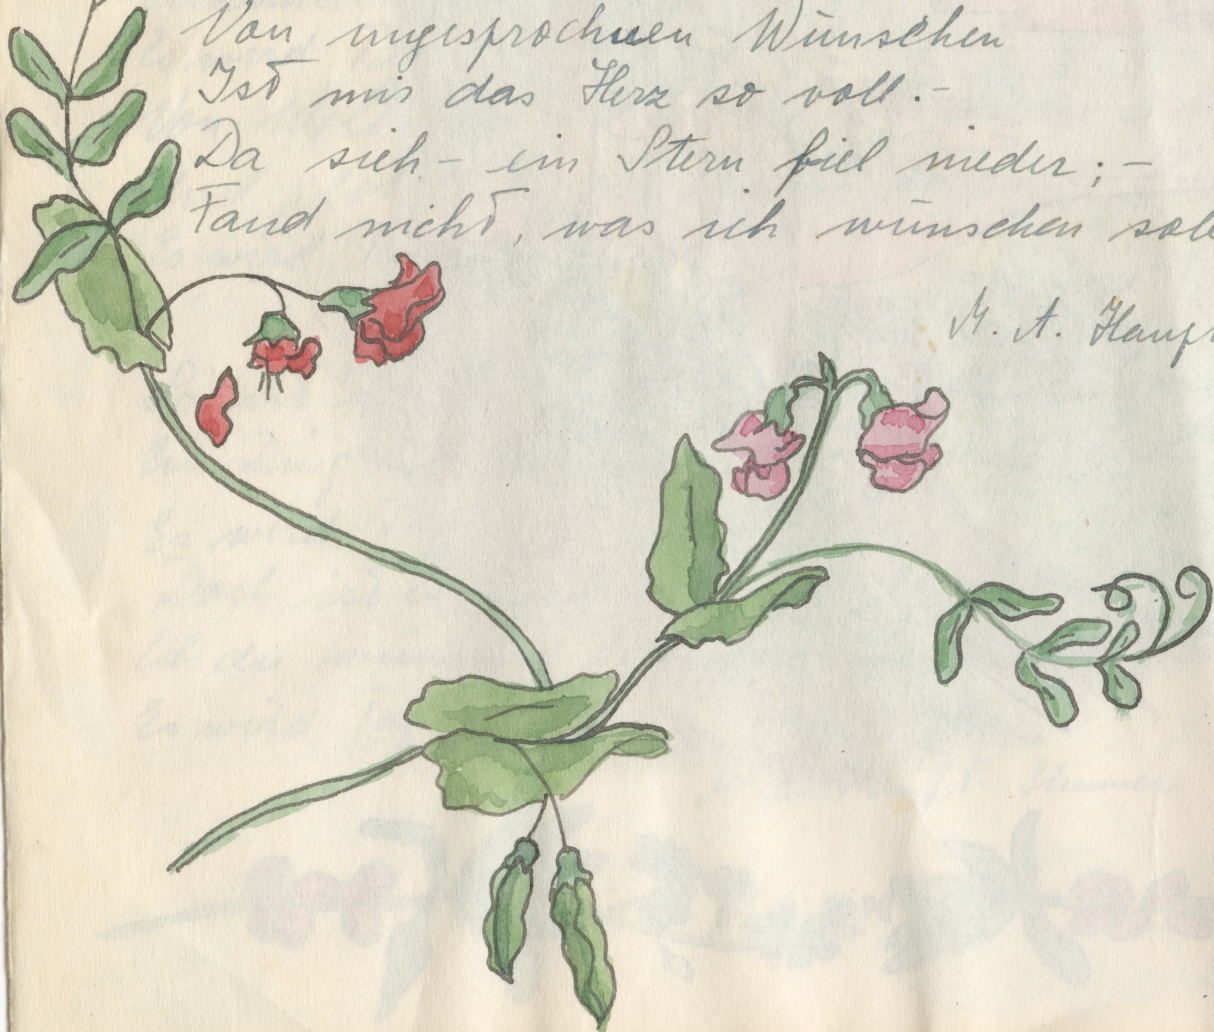 Von ungesprochnen Wünschen
Ist mir das Herz so voll.–
Da sieh – ein Stern fiel nieder; –
Fand nicht, was ich wünschen soll
M. A. Haupt